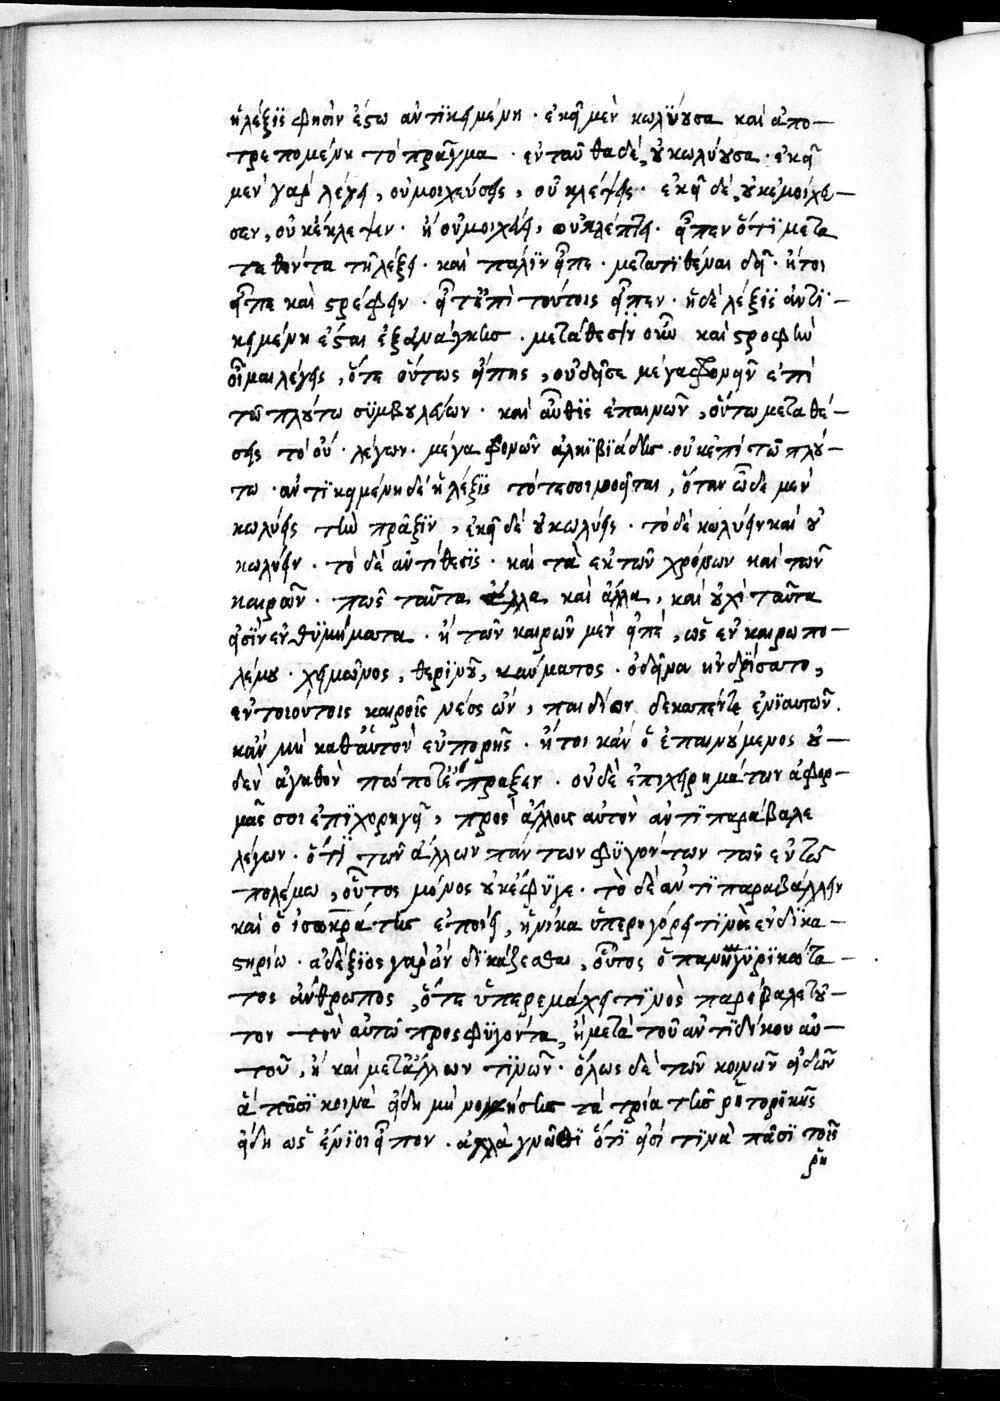 ἡ λέξϊς φησὶν ἔστω αντϊκειμένη · εκεῖ μὲν κωλύουσα καὶ ἀπο-
τρεπομένη τὸ πρᾶγμα · ενταῦθα δὲ, οὐ κωλύουσα · εκεῖ
μὲν γαρ λέγει, οὐ μοιχεύσεις, οὐ κλέψεις · εκεῖ δὲ, οὐκ εμοίχευ-
σεν, οὐκ έκλεψεν · ἢ οὐ μοιχεύει, οὐ κλέπτει · εἶπεν ὅτϊ μετα
ταθοντα τῆ λέξει · καὶ πάλϊν εἶπε · μετατϊθέναι δεῖ · ἤτοι
εἶπε καὶ στρέφειν · εἶτ επὶ τούτοις εἶπεν · ἡ δὲ λέξϊς ἀντϊ-
κειμένη έσται εξ ανάγκης · μετάθεσϊν οὖν καὶ στροφὴν
οἶμαι λέγεις, ὅτε οὕτως είπης, οὐδείς σε μέγα φρονεῖν επὶ
τῶ πλούτω συμβουλεύων · καὶ αὖθϊς επαινῶν, οὕτω μεταθέ-
σεις τὸ οὐ · λέγων · μέγα φρονῶν αλκϊβϊάδης οὐκ επὶ τῶ πλού-
τω · αντϊκειμένη δὲ ἡ λέξϊς τότε σοι ποιεῖται, ὅταν ὧδε μὲν
κωλύεις τὴν πρᾶξϊν, εκεῖ δὲ οὐ κωλύεις · τὸ δὲ κωλύειν καὶ οὐ
κωλύειν · τὸ δὲ αντίθεσϊς · καὶ τὰ εκ τῶν χρόνων καὶ τῶν
καιρῶν · πῶς ταῦτα άλλα καὶ ἀλλα, καὶ οὐχὶ ταῦτα
εἰσὶν ενθϋμήματα · ἢ τῶν καιρῶν μὲν εἰπὲ, ὡς εν καιρῶ πο-
λέμου · χειμῶνος, θερϊνοῦ, καύματος · ὁ δεῖνα ηνδρίσατο,
εν τοιούτοις καιροῖς νέος ὢν, παιδίον δεκαπέντε ενϊαυτῶν ·
κἂν μὴ καθ αὑτὸν ευπορῆς · ἤτοι κἂν ὁ επαινούμενος οὐ-
δὲν ἀγαθὸν πώποτε έπραξεν · οὐδὲ επιχειρημάτων ἀφορ-
μάς σοι επϊχορηγεῖ, πρὸς ἄλλους αὐτὸν αντϊπαράβαλε
λέγων · ὅτϊ τῶν άλλων πάντων φϋγόντων τῶν εν τῶ
πολέμω, οὗτος μόνος οὐκ έφϋγε · τὸ δὲ αντϊπαραβάλλειν
καὶ ὁ ἰσωκράτης εποίει, ἡνίκα ὑπερηγόρει τϊνὸς εν δϊκα-
στηρίω · αδέξϊος γαρ ὢν δϊκάζεσθαι, οὗτος ὁ πανηγϋρϊκώτα-
τος άνθρωπος, ὅτε ὑπερεμάχει τϊνὸς παρέβαλε τοῦ-
τον τὸν αὐτῶ προσφϋγόντα, ἢ μετὰ τοῦ αντϊδίκου αὐ-
τοῦ, ἢ καὶ μετ άλλων τϊνῶν · ὅλως δὲ τῶν κοινῶν εἰδῶν
ἃ πᾶσϊ κοινὰ είδη μὴ νομίσης τὰ τρία τῆς ρητορϊκῆς
είδη ὡς ένϊοι εἶπον · αλλὰ γνῶθϊ ὅτϊ εἰσί τϊνα πᾶσϊ τοῖς
ρη